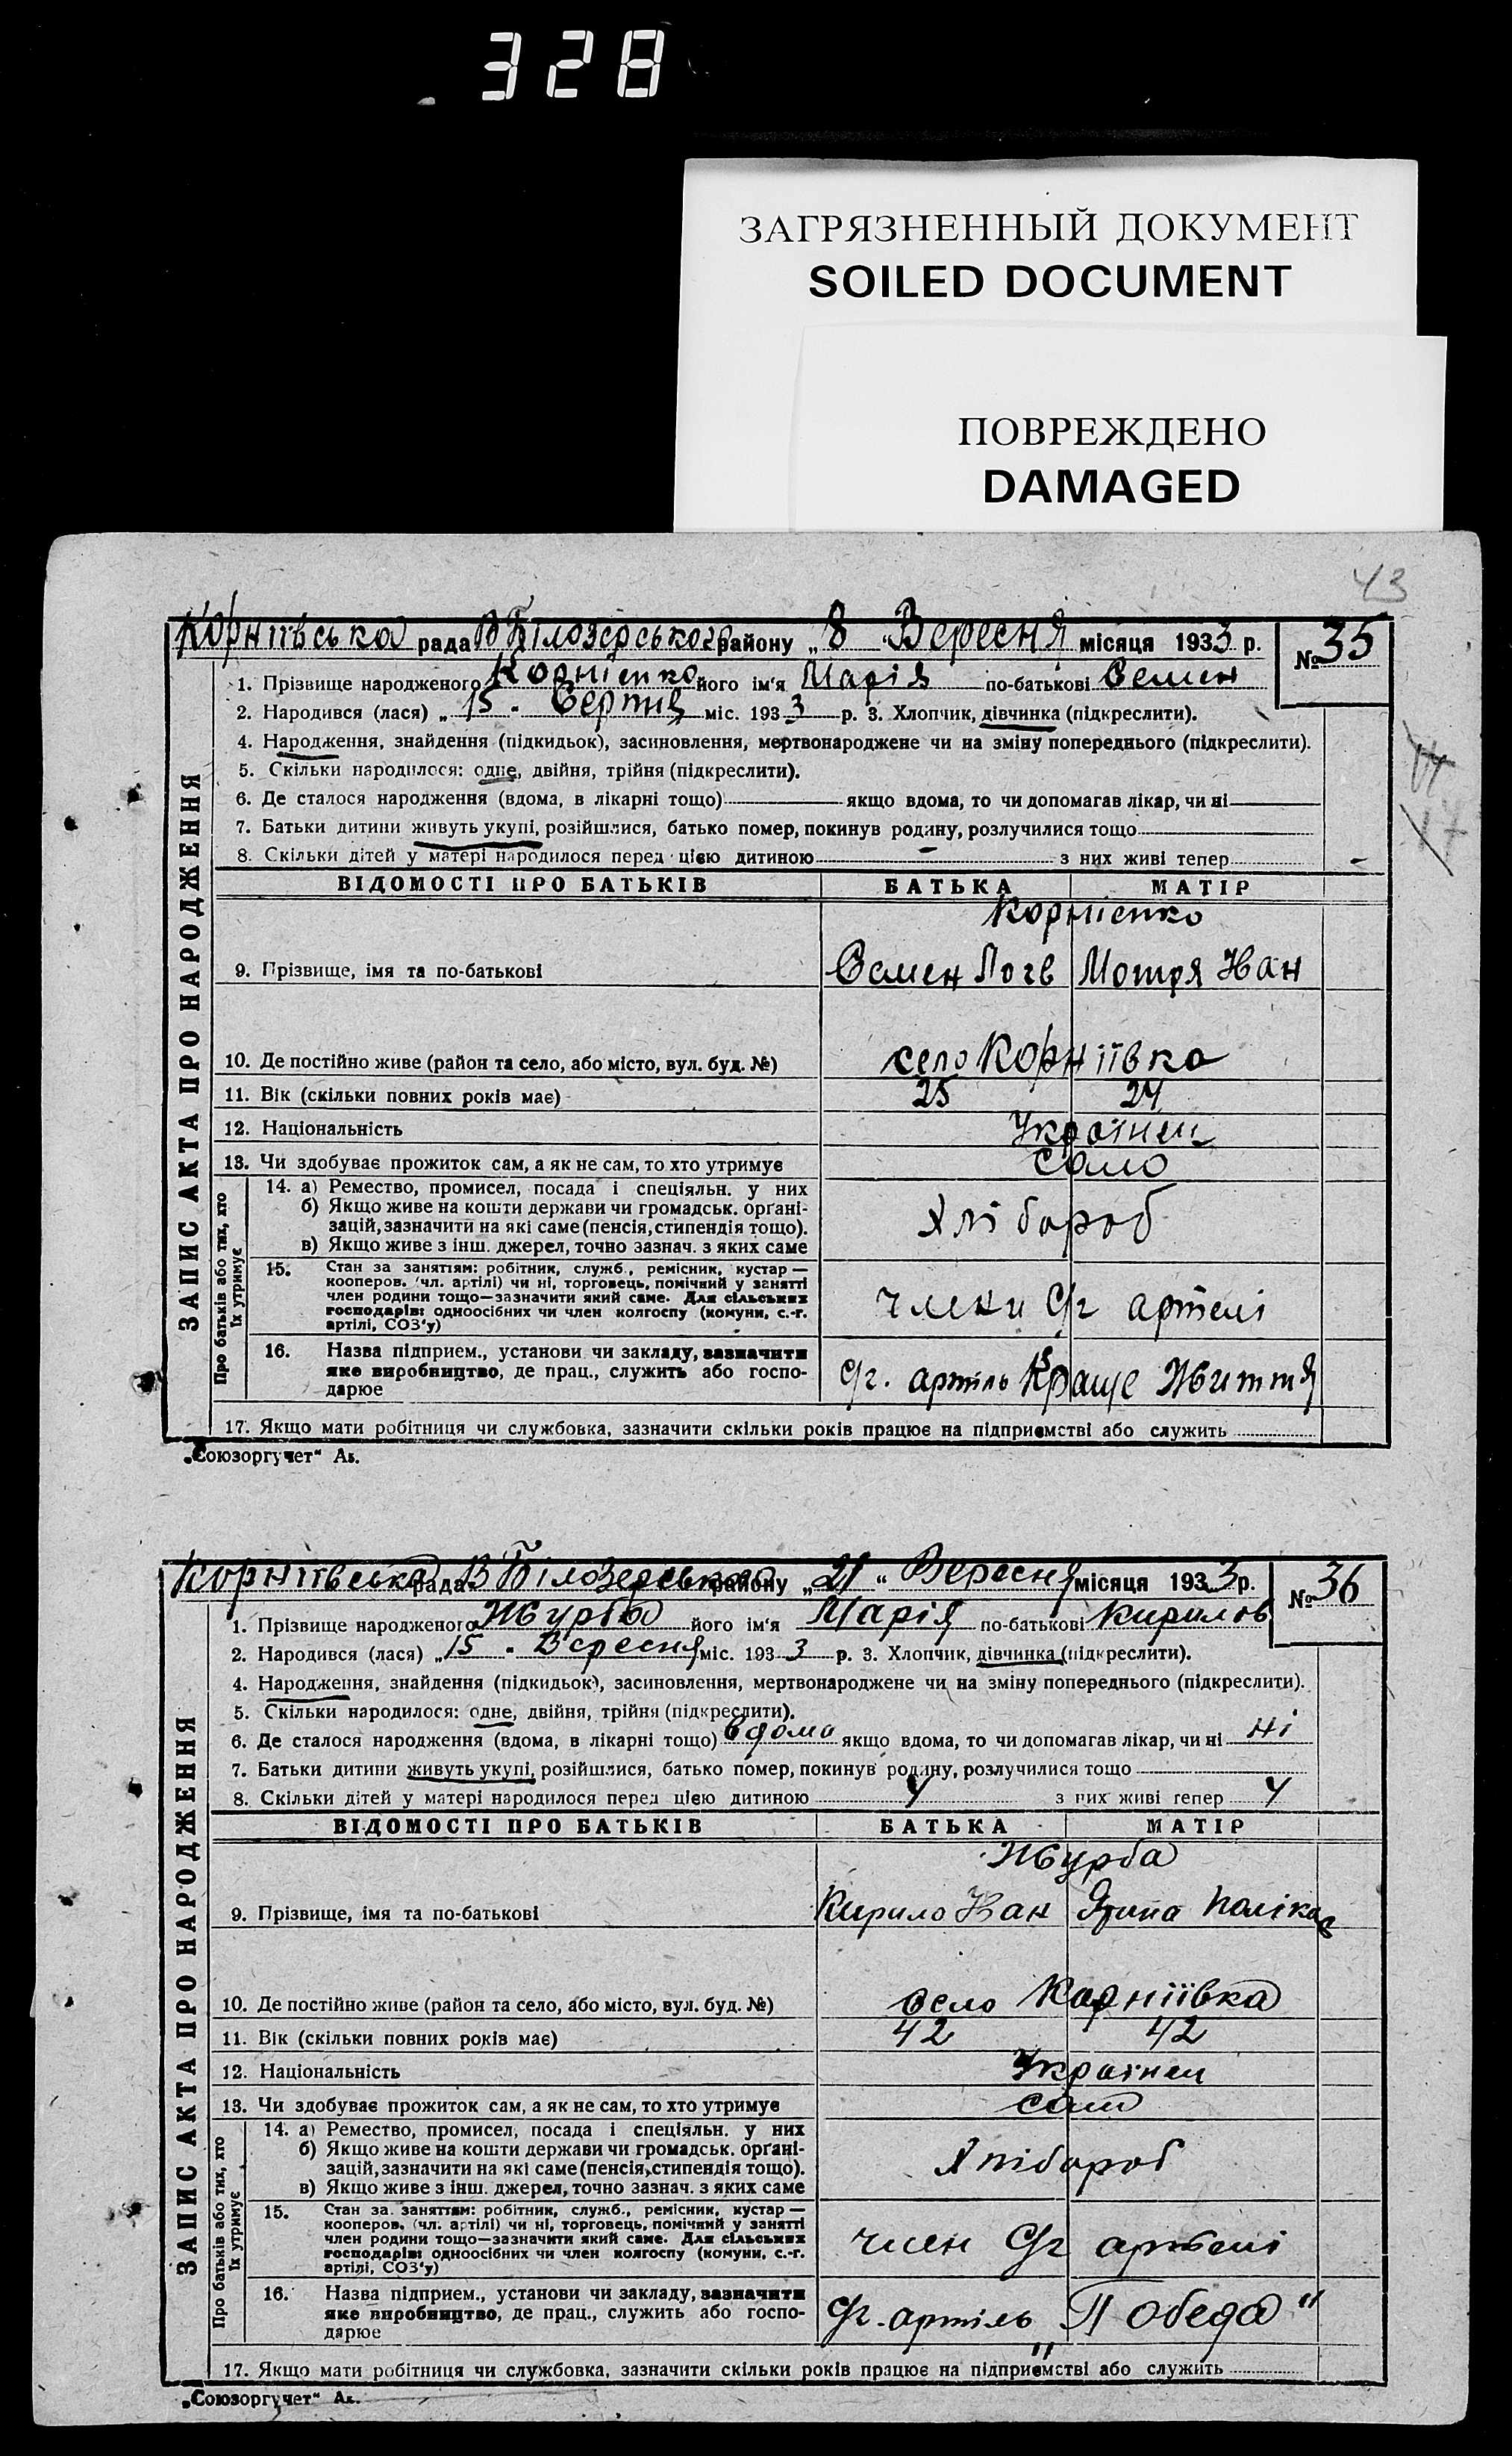 328
ЗАГРЯЗНЕННЫЙ ДОКУМЕНТ
SOILED DOCUMENT
ПОВРЕЖДЕНО
DAMAGED
43
Корніівська рада В Білозерського району „8“ Вересня місяця 1933 р. № 35
1. Прізвище народженого Корнієнко його ім‘я Марія по-батькові Семен
2. Народився (лася) „15“ Серпня міс. 1933 р. 3. Хлопчик, дівчинка (підкреслити).
4. Народження, знайдення (підкидьок), засиновлення, мертвонароджене чи на зміну попереднього (підкреслити).
5. Скільки народилося: одне, двійня, трійня (підкреслити).
6. Де сталося народження (вдома, в лікарні тощо) якщо вдома, то чи допомагав лікар, чи ні
7. Батьки дитини живуть укупі, розійшлися, батько помер, покинув родину, розлучилися тощо
8. Скільки дітей у матері народилося перед цією дитиною - з них живі тепер -
17
ЗАПИС АКТА ПРО НАРОДЖЕННЯ
ВІДОМОСТІ ПРО БАТЬКІВ БАТЬКА МАТІР
Корнієнко
9. Прізвище, імя та по-батькові Семен Логв Мотря Іван
10. Де постійно живе (район та село, або місто, вул. буд. №) село Корніївка
11. Вік (скільки повних років має) 25 24
12. Національність Українец
13. Чи здобуває прожиток сам, а як не сам, то хто утримує само
Про батьків або тих, хто їх утримує
14. а) Ремество, промисел, посада і спеціяльн. у них
б) Якщо живе на кошти держави чи громадськ. орґані-
зацій, зазначити на які саме (пенсія, стипендія тощо).
в) Якщо живе з інш. джерел, точно зазнач. з яких саме
Хлібороб
15. Стан за заняттям: робітник, служб., ремісник, кустар —
кооперов. (чл. артілі) чи ні, торговець, помічний у занятті
член родини тощо—зазначити який саме. Для сільських
господарів: одноосібних чи член колгоспу (комуни, с.-г.
артілі, СОЗ‘у)
члени С/г артелі
16. Назва підприєм., установи чи закладу, зазначити
яке виробництво, де прац., служить або госпо-
дарює
С/г. артіль Краще Життя
17. Якщо мати робітниця чи службовка, зазначити скільки років працює на підприємстві або служить
„Союзоргучет“ Ак.
Корніівська рада В Білозерського району „21“ Вересня місяця 1933 р. № 36
1. Прізвище народженого Журба його ім‘я Марія по-батькові Кирилов
2. Народився (лася) „15“ Вересня міс. 1933 р. 3. Хлопчик, дівчинка (підкреслити).
4. Народження, знайдення (підкидьок), засиновлення, мертвонароджене чи на зміну попереднього (підкреслити).
5. Скільки народилося: одне, двійня, трійня (підкреслити).
6. Де сталося народження (вдома, в лікарні тощо) вдома якщо вдома, то чи допомагав лікар, чи ні ні
7. Батьки дитини живуть укупі, розійшлися, батько помер, покинув родину, розлучилися тощо
8. Скільки дітей у матері народилося перед цією дитиною 4 з них живі тепер 4
ЗАПИС АКТА ПРО НАРОДЖЕННЯ
ВІДОМОСТІ ПРО БАТЬКІВ БАТЬКА МАТІР
Журба
9. Прізвище, імя та по-батькові Кирило Іван Ярина Полікар
10. Де постійно живе (район та село, або місто, вул. буд. №) село Корніївка
11. Вік (скільки повних років має) 42 42
12. Національність Українец
13. Чи здобуває прожиток сам, а як не сам, то хто утримує сам
Про батьків або тих, хто їх утримує
14. а) Ремество, промисел, посада і спеціяльн. у них
б) Якщо живе на кошти держави чи громадськ. орґані-
зацій, зазначити на які саме (пенсія, стипендія тощо).
в) Якщо живе з інш. джерел, точно зазнач. з яких саме
Хлібороб
15. Стан за заняттям: робітник, служб., ремісник, кустар —
кооперов. (чл. артілі) чи ні, торговець, помічний у занятті
член родини тощо—зазначити який саме. Для сільських
господарів: одноосібних чи член колгоспу (комуни, с.-г.
артілі, СОЗ‘у)
член С/г артелі
16. Назва підприєм., установи чи закладу, зазначити
яке виробництво, де прац., служить або госпо-
дарює
С/г. артіль „Победа"
17. Якщо мати робітниця чи службовка, зазначити скільки років працює на підприємстві або служить
„Союзоргучет“ Ак.